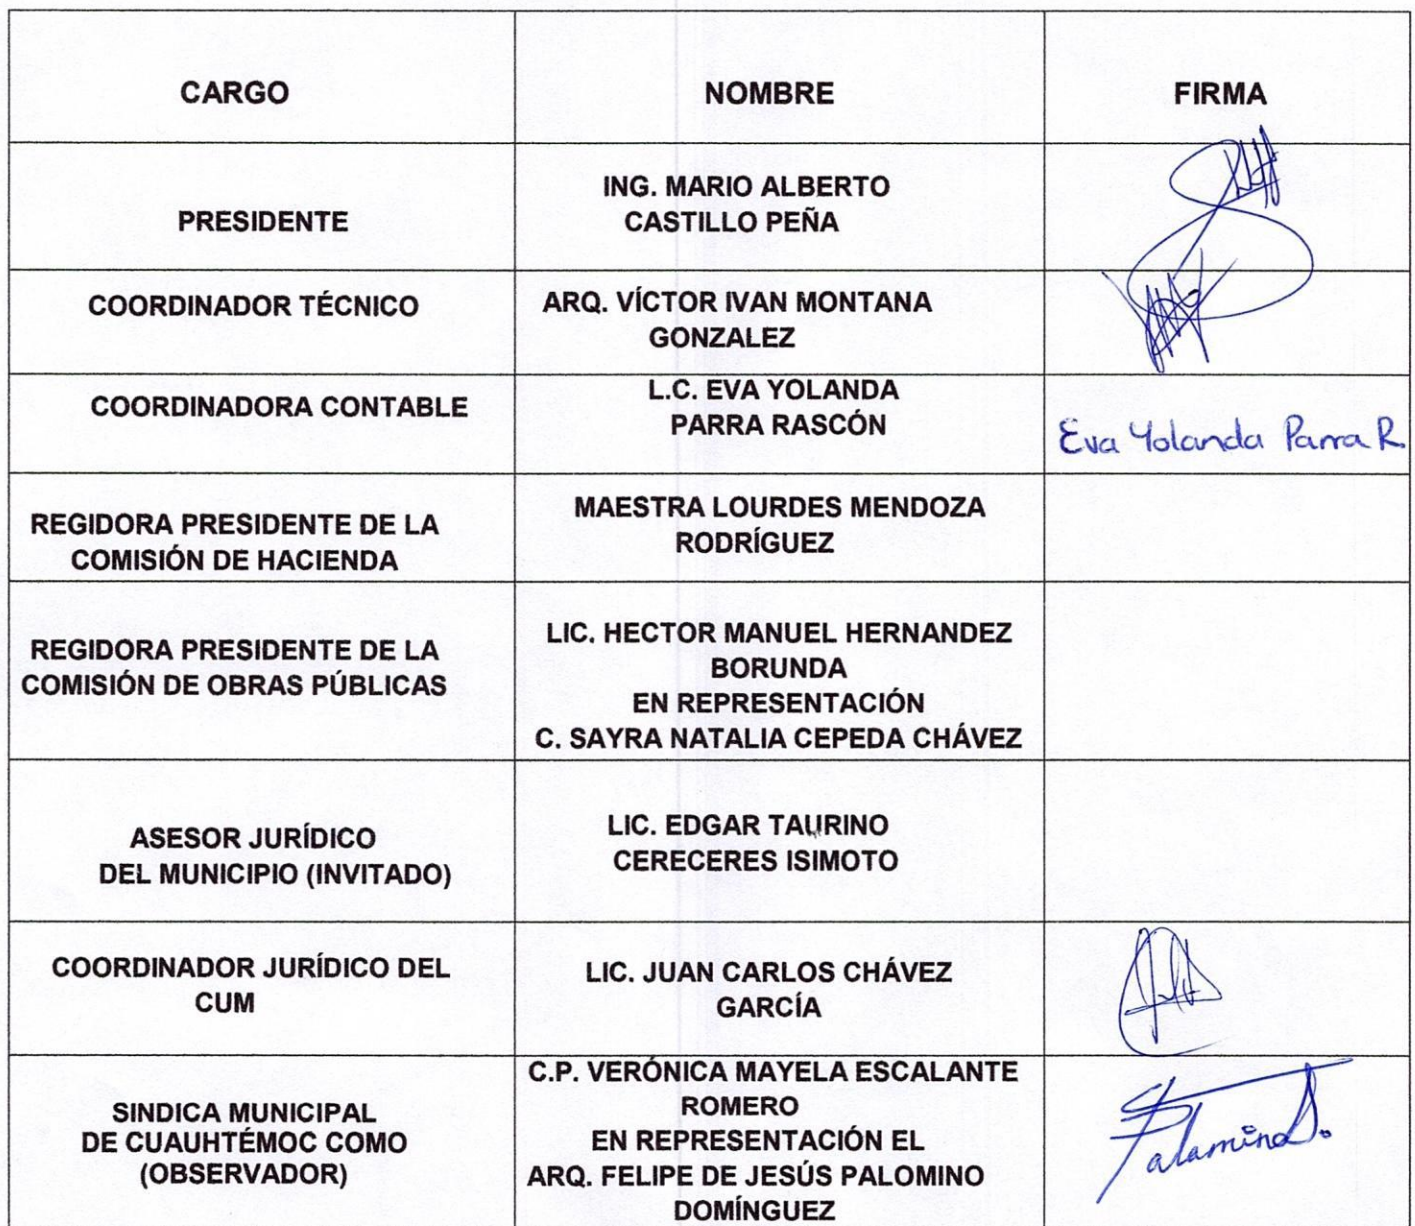 CARGO
NOMBRE
FIRMA
PRESIDENTE
ING. MARIO ALBERTO
CASTILLO PEÑA
COORDINADOR TÉCNICO
ARQ. VÍCTOR IVAN MONTANA
GONZALEZ
COORDINADORA CONTABLE
L.C. EVA YOLANDA
PARRA RASCÓN
Eva Yolanda Parra R.
REGIDORA PRESIDENTE DE LA
COMISIÓN DE HACIENDA
MAESTRA LOURDES MENDOZA
RODRÍGUEZ
REGIDORA PRESIDENTE DE LA
COMISIÓN DE OBRAS PÚBLICAS
LIC. HECTOR MANUEL HERNANDEZ
BORUNDA
EN REPRESENTACIÓN
C. SAYRA NATALIA CEPEDA CHÁVEZ
ASESOR JURÍDICO
DEL MUNICIPIO (INVITADO)
LIC. EDGAR TAURINO
CERECERES ISIMOTO
COORDINADOR JURÍDICO DEL
CUM
LIC. JUAN CARLOS CHÁVEZ
GARCÍA
SINDICA MUNICIPAL
DE CUAUHTÉMOC COMO
(OBSERVADOR)
C.P. VERÓNICA MAYELA ESCALANTE
ROMERO
EN REPRESENTACIÓN EL
ARQ. FELIPE DE JESÚS PALOMINO
DOMÍNGUEZ